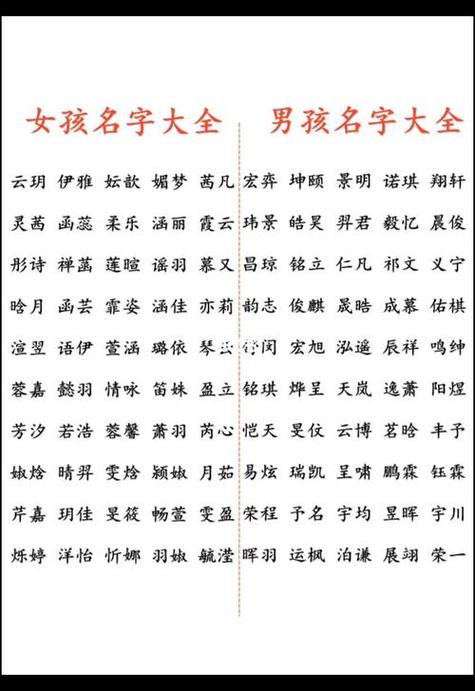 女孩名字大全 男孩名字大全
云玥 伊雅 妘歆 媚梦 茜凡 宏弈 坤颐 景明 诺琪 翔轩
灵茜 函蕊 柔乐 涵丽 霞云 玮景 皓昊 羿君 毅忆 晨俊
彤诗 禅菡 莲暄 谣羽 慕又 昌琼 铭立 仁凡 祁文 义宁
晗月 函芸 霏姿 涵佳 亦莉 韵志 俊麒 晟皓 成慕 佑棋
渲翌 语伊 萱涵 璐依 宏旭 泓遥 辰祥 鸣绅
蓉嘉 懿羽 情咏 笛姝 盈立 铭琪 烨呈 天岚 逸萧 阳煜
芳汐 若浩 蓉馨 萧羽 芮心 恺天 旻伩 云博 茗晗 丰予
婌焓 晴羿 雯焓 颍婌 月茹 易炫 瑞凯 呈啸 鹏霖 钰霖
芹嘉 玥佳 旻筱 畅萱 雯盈 荣程 予名 宇均 昱晖 宇川
烁婷 洋怡 忻娜 羽婌 毓滢 晖羽 运枫 泊谦 展翊 荣一